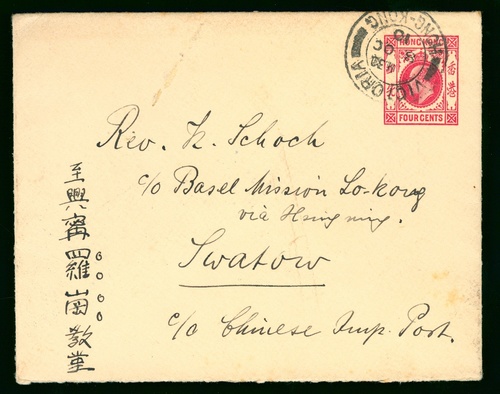 HONG KONG
香港
FOUR CENTS
VICTORIA
HONG-KONG
Rev. K. Schoch
c/o Basel Mission Lo-kong
via Hsingning.
Swatow
c/o Chinese Imp. Post.
至興甯羅崗教堂